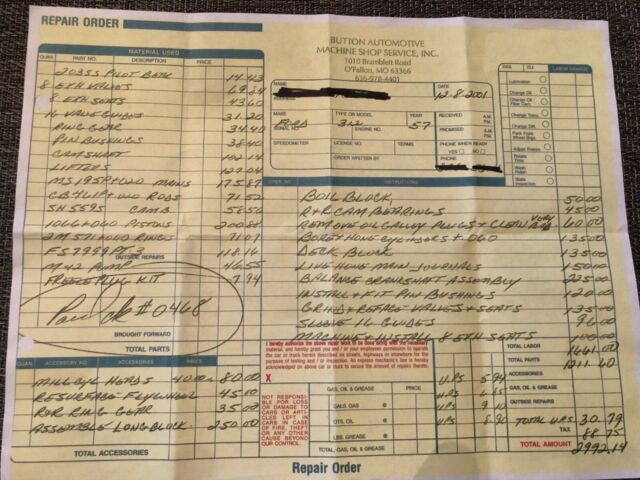 REPAIR ORDER
BUTTON AUTOMOTIVE
MACHINE SHOP SERVICE, INC.
1010 Bramblett Road
O'Fallon, MO 63366
636-978-4401
MATERIAL USED
QUAN. PART NO. DESCRIPTION PRICE
203SS PILOT BEAR 14.43
8 EXH VALVES 69.84
8 EXH SEATS 43.60
16 VALVE GUIDES 31.20
RING GEAR 34.40
PIN BUSHINGS 38.40
CAMSHAFT 102.14
LIFTERS 127.04
MS195P+020 MAINS 175.87
CB411P+020 RODS 71.52
SH559S CAMB 58.56
1066+060 PISTONS 200.88
2M571+060 RINGS 71.07
FS7999PT-3 118.16
OUTSIDE REPAIRS
M42 PUMP 46.55
FREEZE PLUG KIT 7.94
Paid Ck #0468
BROUGHT FORWARD
TOTAL PARTS
NAME
ADDRESS
DATE
12-8-2001
MAKE TYPE OR MODEL YEAR
FORD 312 57
SERIAL NO. ENGINE NO.
SPEEDOMETER LICENSE NO. TERMS
ORDER WRITTEN BY
RECEIVED A.M. P.M.
PROMISED A.M. P.M.
PHONE WHEN READY
YES NO
PHONE
LABOR CHARGE
Lubrication
Change Oil
Change Oil Filter Cart.
Change Trans.
Change Diff.
Pack Front Wheel Brgs.
Adjust Brakes
Rotate Tires
Wash Polish
State Inspection
OPER. NO. INSTRUCTIONS
BOIL BLOCK, 50.00
R+R CAM BEARINGS 45.00
REMOVE OIL GALLOY PLUGS + CLEAN 60.00
BORE + HONE CYLINDERS +.060 135.00
DECK BLOCK 135.00
LINE HONE MAIN JOURNALS 150.00
BALANCE CRANKSHAFT ASSEMBLY 225.00
INSTALL + FIT PIN BUSHINGS 120.00
GRIND + REFACE VALVES + SEATS 135.00
SLEEVE 16 GUIDES 96.00
MACHINE + INSTALL 8 EXH SEATS 100.00
TOTAL LABOR 1661.00
TOTAL PARTS 1211.60
QUAN. ACCESSORIES PRICE
MILL CYL HEADS 40.00 80.00
RESURFACE FLYWHEEL 45.00
R+R RING GEAR 35.00
ASSEMBLE LONGBLOCK 250.00
TOTAL ACCESSORIES
I hereby authorize the above repair work to be done along with the necessary material, and hereby grant you and / or your employees permission to operate the car or truck herein described on streets, highways or elsewhere for the purpose of testing and / or inspection. An express mechanic's lien is hereby acknowledged on above car or truck to secure the amount of repairs thereto.
X
NOT RESPONSIBLE FOR LOSS OR DAMAGE TO CARS OR ARTICLES LEFT IN CARS IN CASE OF FIRE, THEFT OR ANY OTHER CAUSE BEYOND OUR CONTROL.
GAS, OIL & GREASE
GALS. GAS @
QTS. OIL @
LBS. GREASE @
TOTAL, GAS, OIL & GREASE
UPS 5.94
UPS
UPS 9.10
UPS 8.90
ACCESSORIES
GAS, OIL & GREASE
OUTSIDE REPAIRS
TOTAL UPS 30.79
TAX 88.75
TOTAL AMOUNT 2992.14
Repair Order